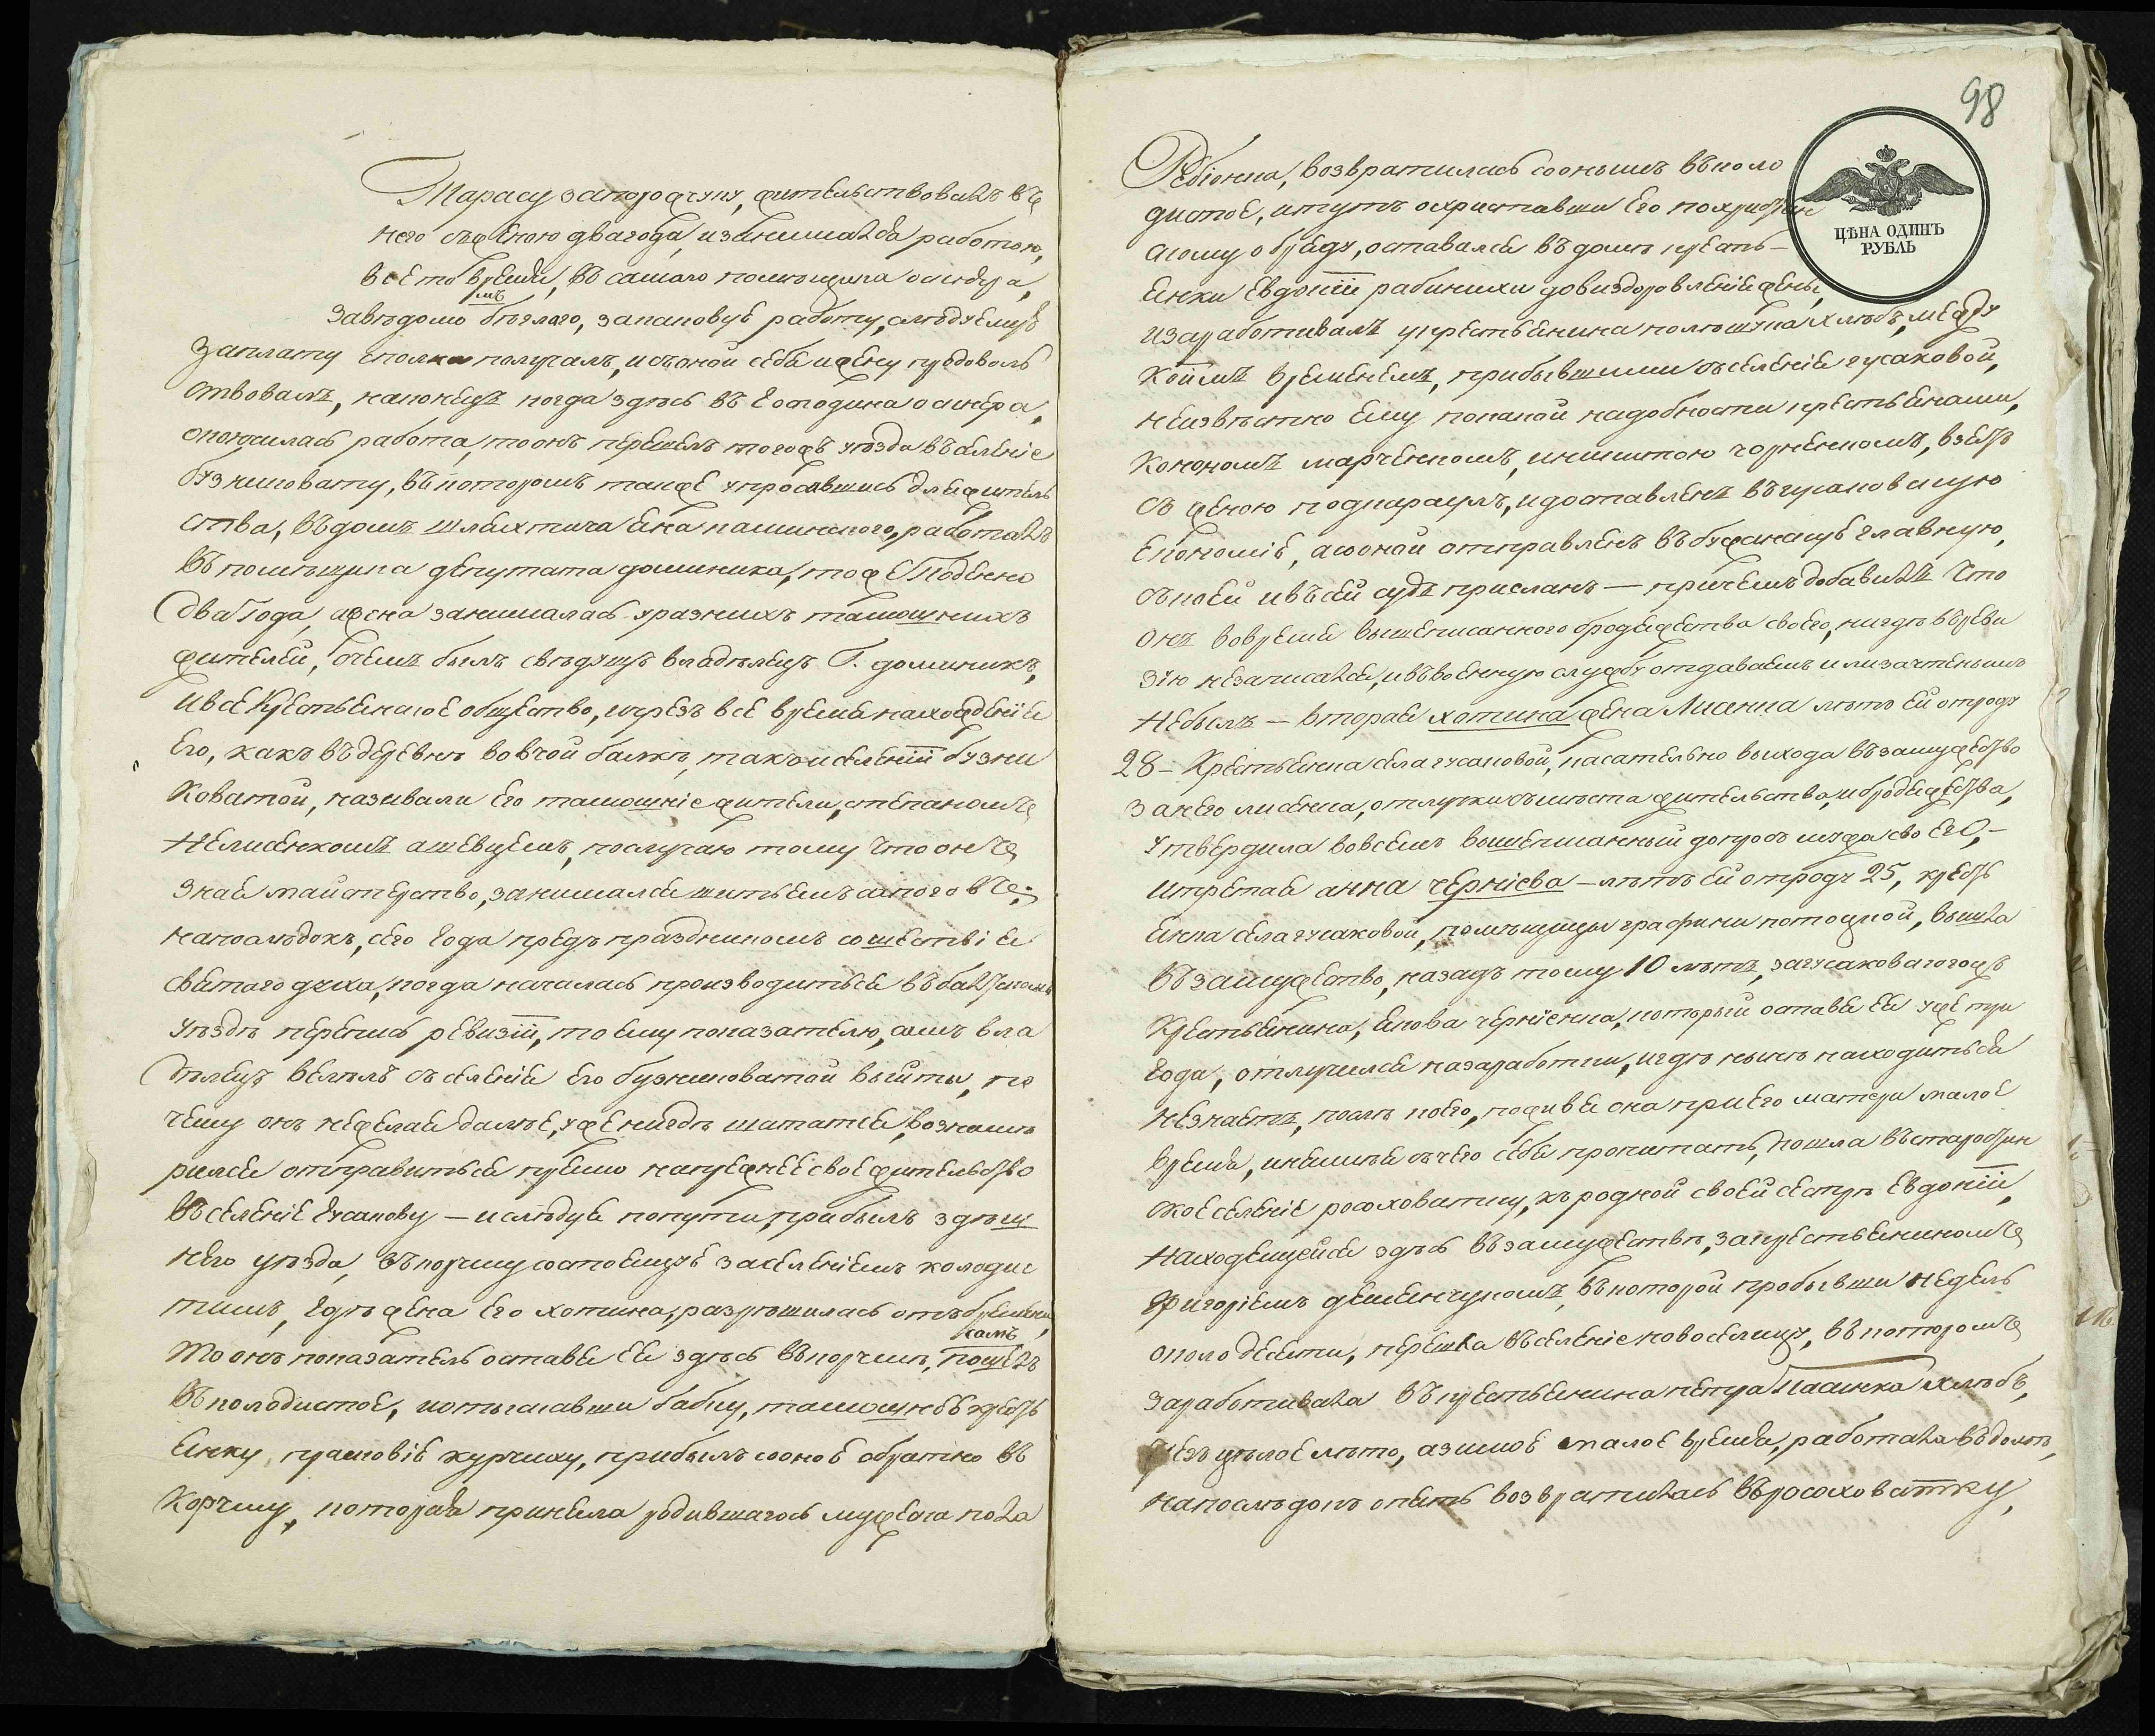 Тарасу запорожчуку, жительствовалъ въ
него съ женою двагода, изанимался работою,
всето время, въ самаго помѣщика осндера,
мъ
завѣдомо бѣглаго, запаковуе работу, слѣдуемуѣ
заплату сполна получалъ, исъоной себя ижену продоволь
ствовалъ, наконецъ когда здѣсь въ господина оснера,
окончилась работа, тоонъ перешелъ тогожъ уѣзда въселеніе
бузниковату, въкоторомъ также упросившись для жытель
ства, въдомъ шляхтича яна пашинского, работалъ
въпомѣщика депутата доминика, тоже подѣнно
два года, ажена занималась уразнихъ тамошнихъ
жителей, очемъ былъ свѣдущъ владѣлецъ Г. доминикъ,
ивсе крестьянское общество, чрезъ всё время нахожденія
его, какъ въдеревнѣ вовчой балкѣ, такъ иселеніи бузни
коватой, називали его тамошніе жители, степаномъ
Нелисенкомъ ашевцемъ, послучаю тому что онъ
зная майстерство, занимался шитьемъ сапоговъ;
напослѣдокъ, сего года предъ праздникомъ сошествія
святаго духа, когда началась производиться въбалтскомъ
уѣздѣ перепись ревизіи, то ему показателю, самъ вла
дѣлецъ велѣлъ съселенія его бузниковатой выйти, по
чему онъ нежелая далѣе, уже нигдѣ шататся, вознамѣ
рился отправиться прямо напрежнее своё жительство
въселеніе гусакову — ислѣдуя попути, прибылъ здѣш
него уѣзда, въкорчму состоящуѣ заселеніемъ колодис
тимъ, гдѣ жена его хотина, разрѣшилась отъ бремени,
самъ
тоонъ показатель оставя ея здѣсь въкорчмѣ, пошелъ
въколодистое, иотыскавши бабку, тамошнюѣ кресть
янку, прасковіѣ курчиху, прибылъ соноѣ обратно въ
корчму, которая приняла родившагось мужеска пола
98
ЦѢНА ОДИНЪ
РУБЛЬ
Ребіонка, возвратилась соонымъ въколо
дистоѣ, итутъ охриставши его похристіян
скому обряду, оставался въдомѣ кресть-
янки Евдокіи рабинихи довиздоровленія жены,
изаработивалъ укрестьянина полюшука хлѣбъ, между
коимъ временемъ, прибывшими съселенія гусаковой,
неизвѣстно ему покакой надобности крестьянами,
конономъ марченкомъ, иникитою чорненкомъ, взятъ
съ женою подкараулъ, идоставленъ въгусаковскую
економіѣ, асоной отправленъ въбужанскуѣ главную,
съкоей ивъсей судъ присланъ — причемъ добавилъ что
онъ вовремя вышеписанного бродяжества своего, нигдѣ вреви
зію незаписался, ивъвоенную службу отдаваемъ илизачтенымъ
небылъ — вторая хотина жена Лисенка лѣтъ ей отроду
28 – Крестьянка села гусаковой, касательно выхода възамужество
занего лисенка, отлучки съмѣста жительства, ибродяжества,
утвердила вовсемъ вышеписанный допросъ мужа своего, –
итретая анна чернієва – лѣтъ ей отроду 25, кресть
янка села гусаковой, помѣщицы графини потоцкой, вышла
възамужество, назадъ тому 10 лѣтъ, загусаковагогожъ
крестьянина, якова черніенка, который оставя ея уже три
года, отлучился назаработки, игдѣ нынѣ находиться
незнаетъ, послѣ коего, поживя она приего матери малоѣ
время, инеимѣя съчего себя пропитать, пошла въстаробин
ское селеніе росоховатку, къ родной своей сестрѣ Евдокіи,
находящейся здѣсь възамужествѣ, закрестьяниномъ
Григоріемъ демянчукомъ, въкоторой пробывши недѣль
около десяти, перешла въселеніе новоселицу, въкоторомъ
заработивала въкрестьянина петра Пасинка хлѣбъ,
чрезъ цѣлоѣ лѣто, азимоѣ малоѣ время, работала въдомѣ,
напослѣдокъ опять возвратилась въросоховатку,